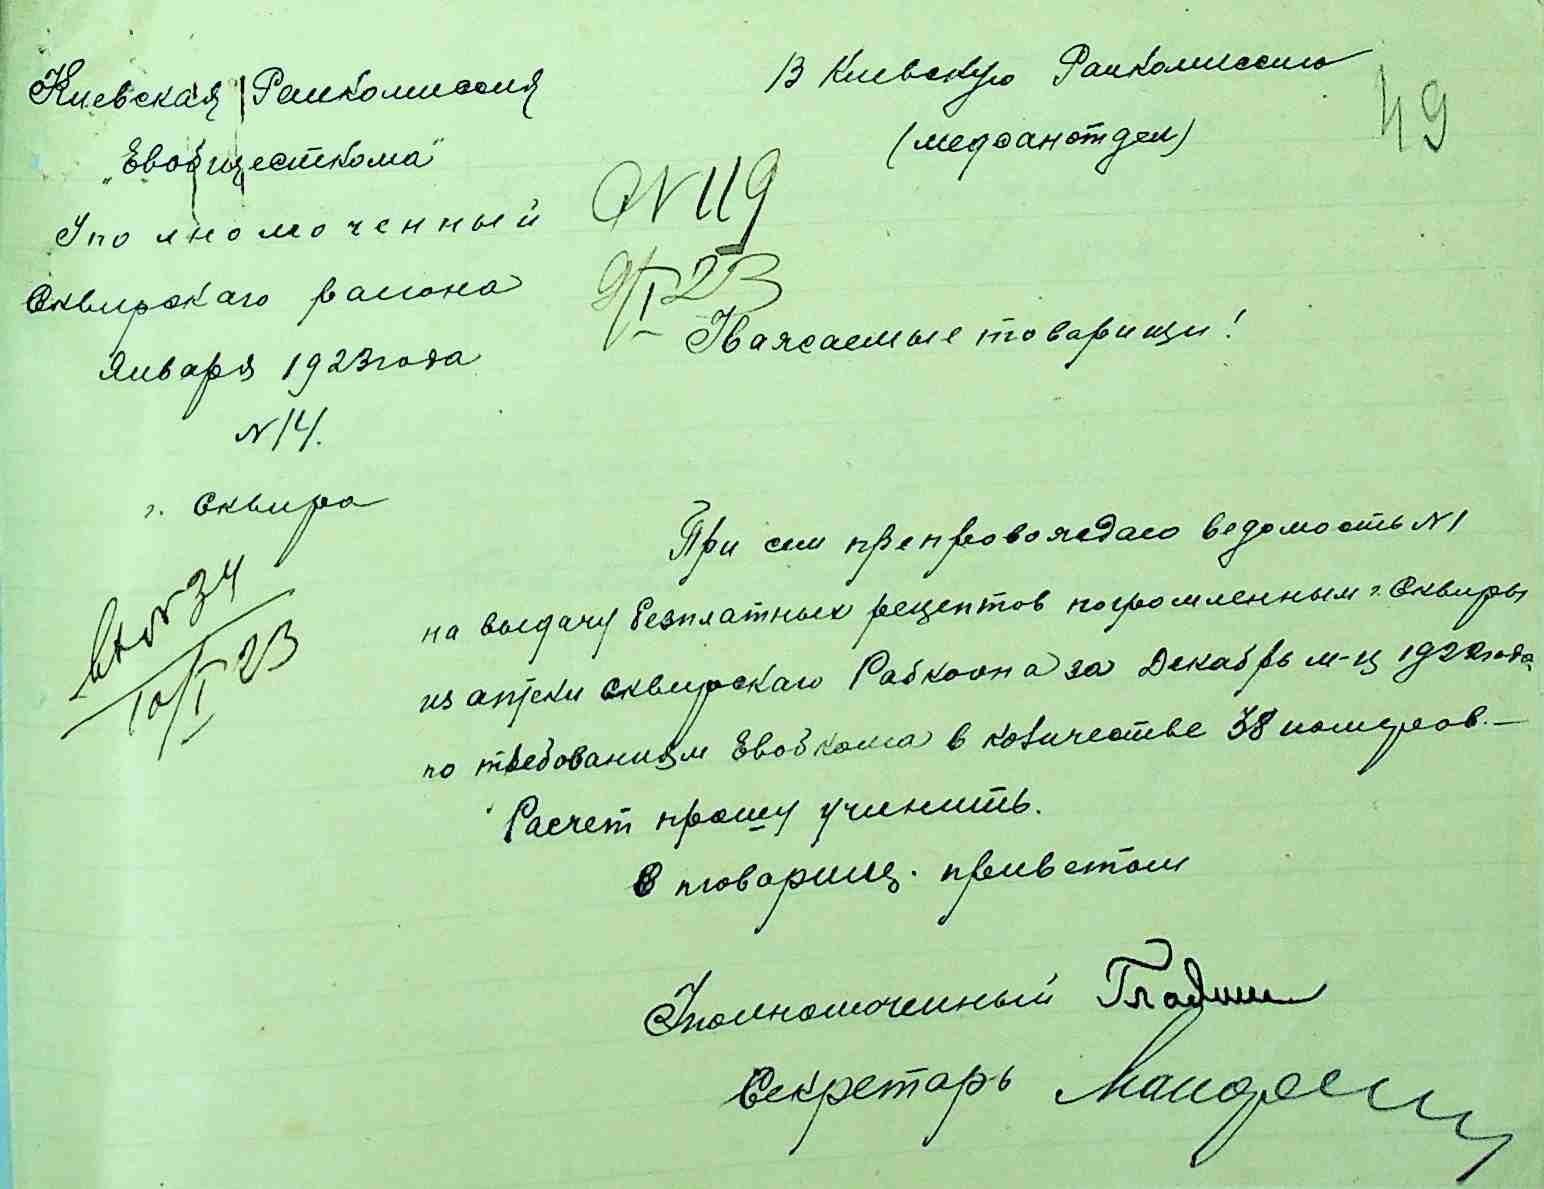 Киевская Раикомиссия
„Евобщесткома"
Уполномоченный
Сквирскаго раиона
Января 1923 года
N 14.
г. Сквира
В Киевскую Раикомиссию
(медсанотдел)
49
N 119
9/I 23
Уважаемые товарищи!
вх N 34
10/I 23
При сем препровождаю ведомость N 1
на выдачу безплатных рецептов погромленным г. Сквиры
из аптеки Сквирскаго Рабкоопа за Декабрь м-ц 1922 года
по требованиям Евобкома в количестве 38 номеров. —
Расчет прошу учинить.
С товарищ. приветом
Уполномоченный
Секретарь